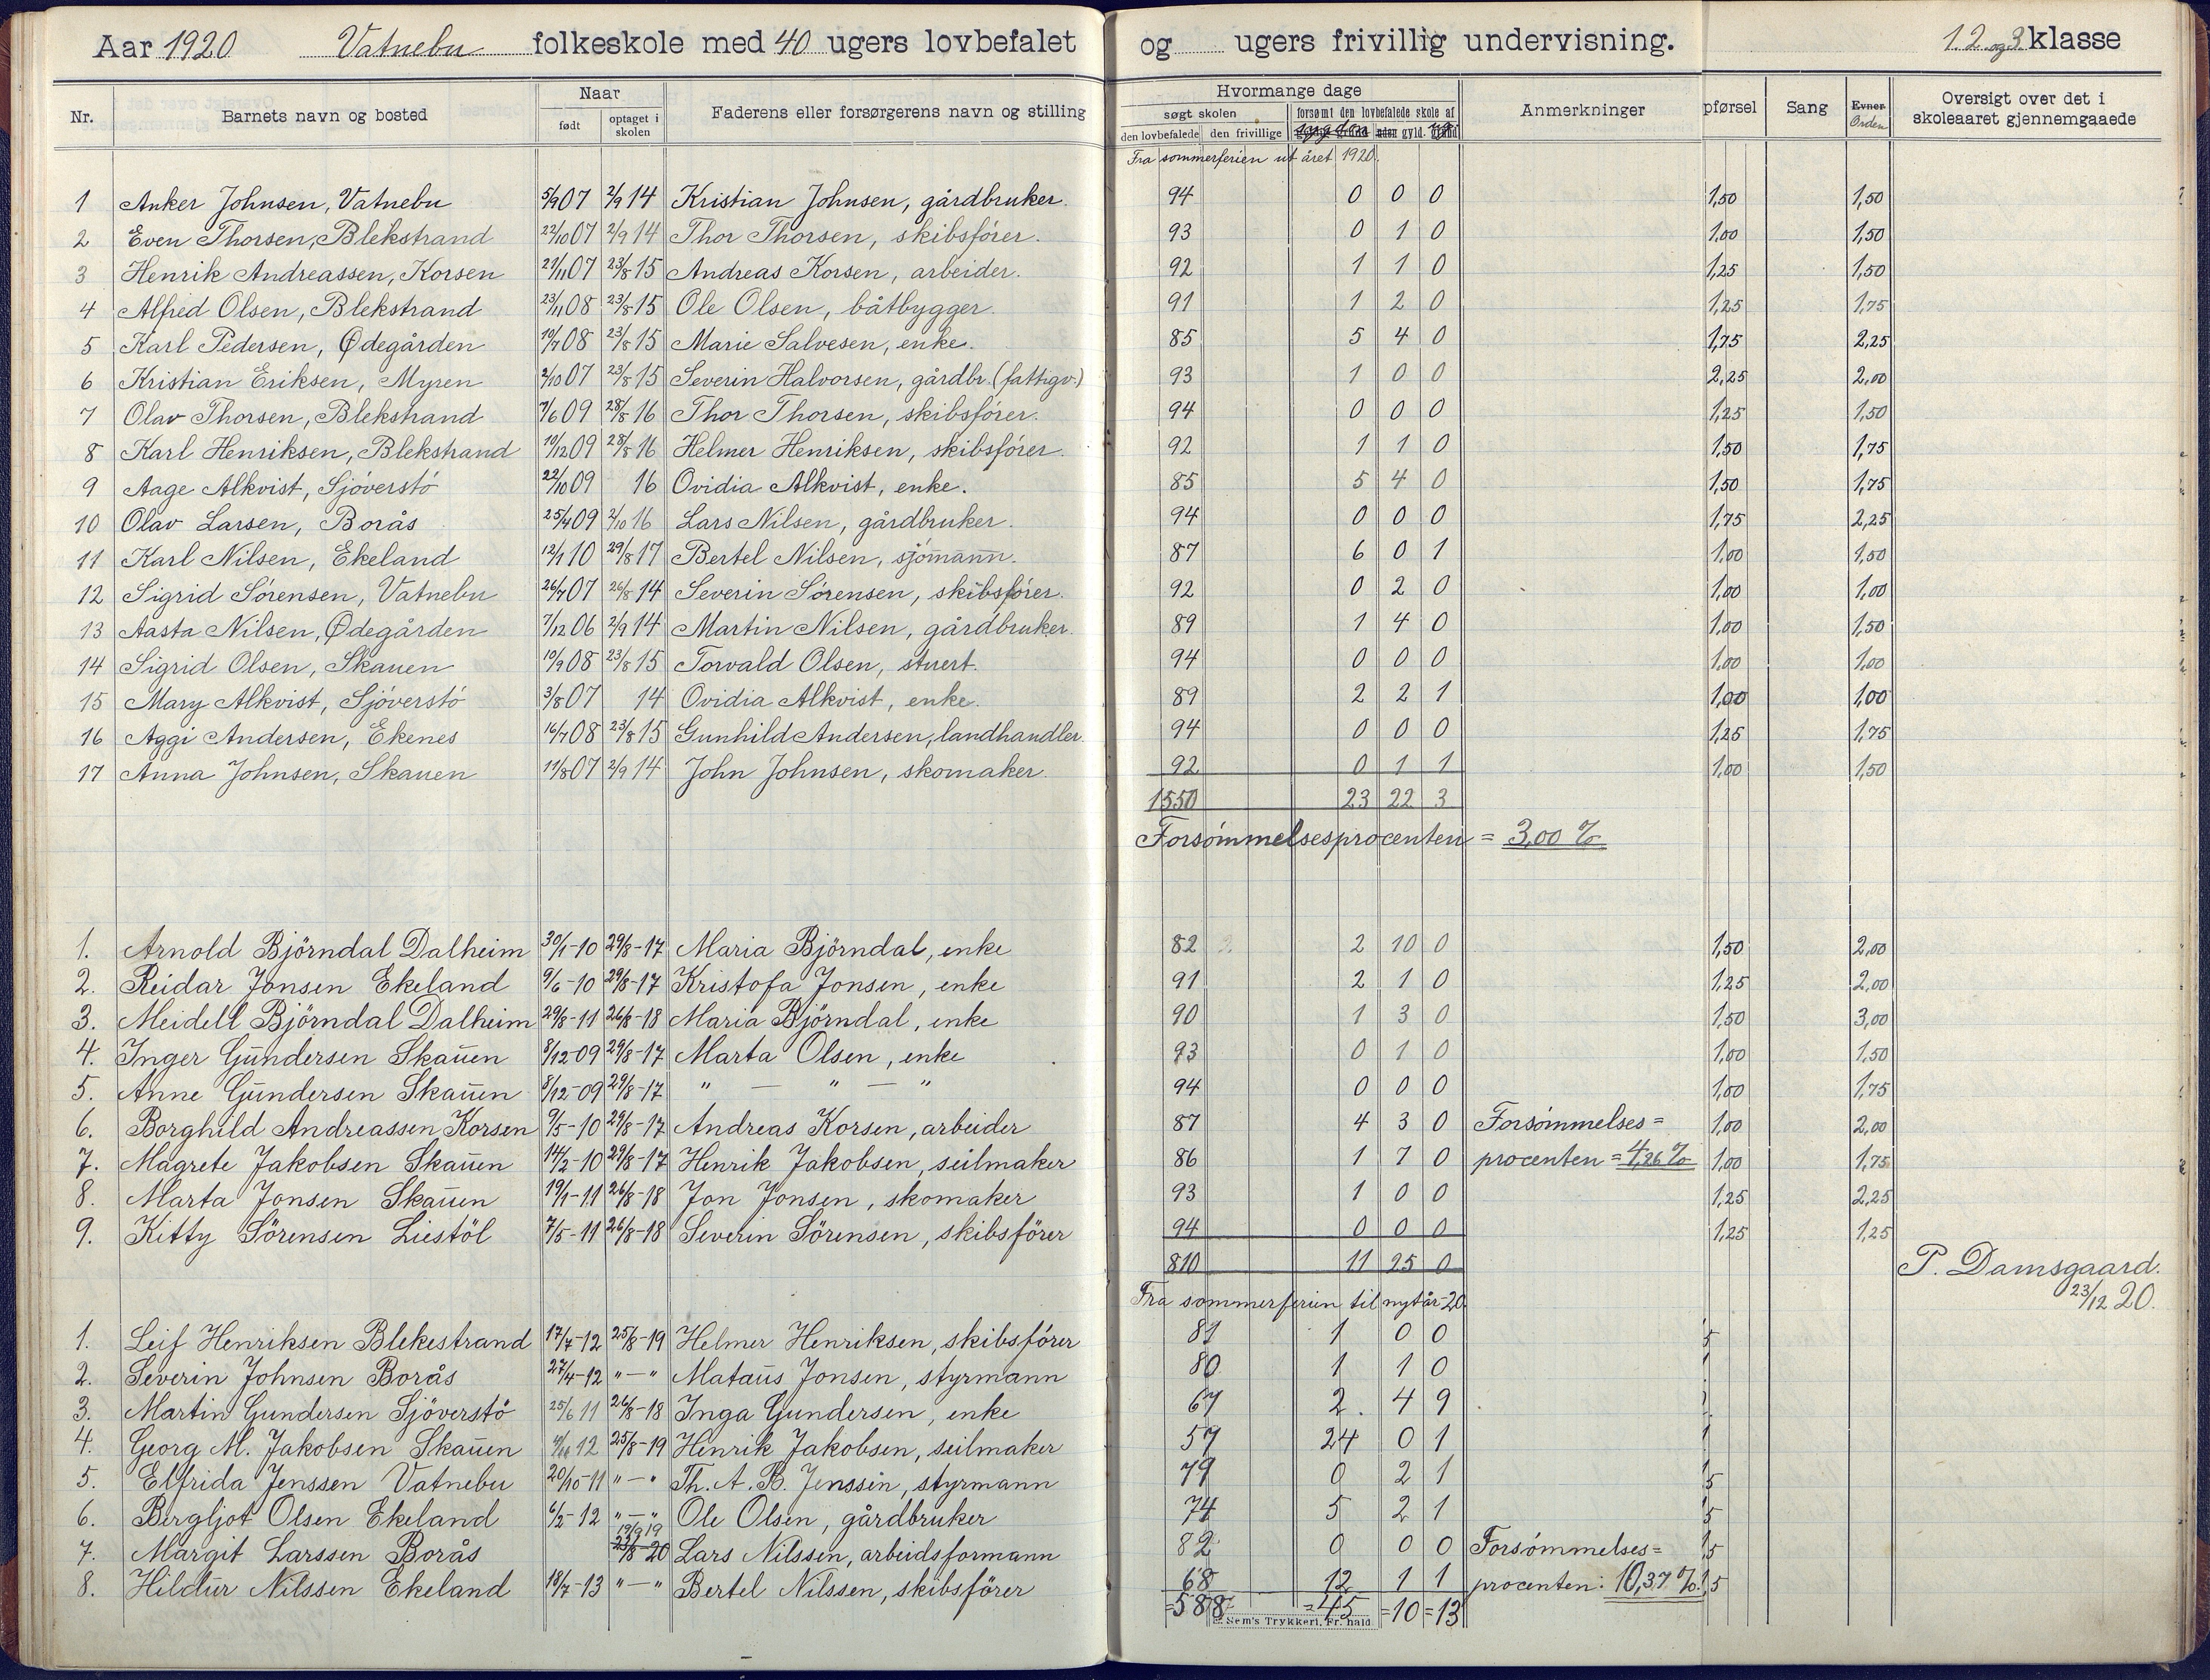 Aar 1920 Vatnebu folkeskole med 40 ugers lovbefalet og ugers frivillig undervisning. 1. 2. og 3. klasse
Nr. Barnets navn og bosted Naar født optaget i skolen Faderens eller forsørgerens navn og stilling Hvormange dage søgt skolen den lovbefalede den frivillige forsømt den lovbefalede skole af sygdom uden gyld. ug. Anmerkninger pførsel Sang Evner Orden Oversigt over det i skoleaaret gjennemgaaede
Fra sommerferien ut året 1920.
1 Anker Johnsen, Vatnebu 5/9 07 2/9 14 Kristian Johnsen, gårdbruker. 94 0 0 0 1,50 1,50
2 Even Thorsen, Blekstrand 22/10 07 2/9 14 Thor Thorsen, skibsfórer. 93 0 1 0 1,00 1,50
3 Henrik Andreassen, Korsen 21/11 07 23/8 15 Andreas Korsen, arbeider. 92 1 1 0 1,25 1,50
4 Alfred Olsen, Blekstrand 23/11 08 23/8 15 Ole Olsen, båtbygger. 91 1 2 0 1,25 1,75
5 Karl Pedersen, Ødegården 10/7 08 23/8 15 Marie Salvesen, enke. 85 5 4 0 1,75 2,25
6 Kristian Eriksen, Myren 2/10 07 23/8 15 Severin Halvorsen, gårdbr. (fattigv.) 93 1 0 0 2,25 2,00
7 Olav Thorsen, Blekstrand 7/6 09 28/8 16 Thor Thorsen, skibsfórer. 94 0 0 0 1,25 1,50
8 Karl Henriksen, Blekstrand 10/12 09 28/8 16 Helmer Henriksen, skibsfórer. 92 1 1 0 1,50 1,75
9 Aage Alkvist, Sjóverstó 22/10 09 16 Ovidia Alkvist, enke. 85 5 4 0 1,50 1,75
10 Olav Larsen, Borås 25/4 09 2/10 16 Lars Nilsen, gårdbruker. 94 0 0 0 1,75 2,25
11 Karl Nilsen, Ekeland 12/1 10 29/8 17 Bertel Nilsen, sjómann. 87 6 0 1 1,00 1,50
12 Sigrid Sórensen, Vatnebu 26/7 07 26/8 14 Severin Sórensen, skibsfórer. 92 0 2 0 1,00 1,00
13 Aasta Nilsen, Ødegården 7/12 06 2/9 14 Martin Nilsen, gårdbruker. 89 1 4 0 1,00 1,50
14 Sigrid Olsen, Skauen 10/9 08 23/8 15 Torvald Olsen, stuert. 94 0 0 0 1,00 1,00
15 Mary Alkvist, Sjóverstó 3/8 07 14 Ovidia Alkvist, enke. 89 2 2 1 1,00 1,00
16 Aggi Andersen, Ekenes 16/7 08 23/8 15 Gunhild Andersen, landhandler. 94 0 0 0 1,25 1,75
17 Anna Johnsen, Skauen 11/8 07 2/9 14 John Johnsen, skomaker. 92 0 1 1 1,00 1,50
1550 23 22 3
Forsómmelsesprocenten = 3,00 %
1. Arnold Björndal Dalheim 30/1-10 29/8-17 Maria Björndal, enke 82 2 10 0 1,50 2,00
2. Reidar Jonsen Ekeland 9/6-10 29/8-17 Kristofa Jonsen, enke 91 2 1 0 1,25 2,00
3. Meidell Björndal Dalheim 29/8-11 26/8-18 Maria Björndal, enke 90 1 3 0 1,50 3,00
4. Inger Gundersen Skauen 8/12-09 29/8-17 Marta Olsen, enke 93 0 1 0 1,00 1,50
5. Anne Gundersen Skauen 8/12-09 29/8-17 " — " — " 94 0 0 0 1,00 1,75
6. Borghild Andreassen Korsen 9/5-10 29/8-17 Andreas Korsen, arbeider 87 4 3 0 Forsömmelses= 1,00 2,00
7. Magrete Jakobsen Skauen 14/2-10 29/8-17 Henrik Jakobsen, seilmaker 86 1 7 0 procenten = 4,26 % 1,00 1,75
8. Marta Jonsen Skauen 19/1-11 26/8-18 Jon Jonsen, skomaker 93 1 0 0 1,25 2,25
9. Kitty Sörensen Liestöl 7/5-11 26/8-18 Severin Sörensen, skibsförer 94 0 0 0 1,25 1,25
810 11 25 0 P. Damsgaard.
23/12 20.
Fra sommerferien til nytår-20.
1. Leif Henriksen Blekestrand 17/7-12 25/8-19 Helmer Henriksen, skibsförer 81 1 0 0 5
2. Severin Johnsen Borås 27/4-12 "—" Mataus Jonsen, styrmann 80 1 1 0
3. Martin Gundersen Sjöverstö 25/6 11 26/8-18 Inga Gundersen, enke 67 2 4 9
4. Georg M. Jakobsen Skauen 12 25/8-19 Henrik Jakobsen, seilmaker 57 24 0 1
5. Elfrida Jenssen Vatnebu 20/10-11 "—" Th. A. B. Jenssen, styrmann 79 0 2 1 5
6. Bergljot Olsen Ekeland 6/2-12 "—" Ole Olsen, gårdbruker 74 5 2 1 5
7. Margit Larssen Borås 19/9 19 23/8 20 Lars Nilssen, arbeidsformann 82 0 0 0 Forsömmelses= 5
8. Hildur Nilssen Ekeland 18/7-13 "—" Bertel Nilssen, skibsförer 68 12 1 1 procenten: 10,37 %. 5
=588 =45 =10 =13
Sem's Trykkeri, Fr.hald